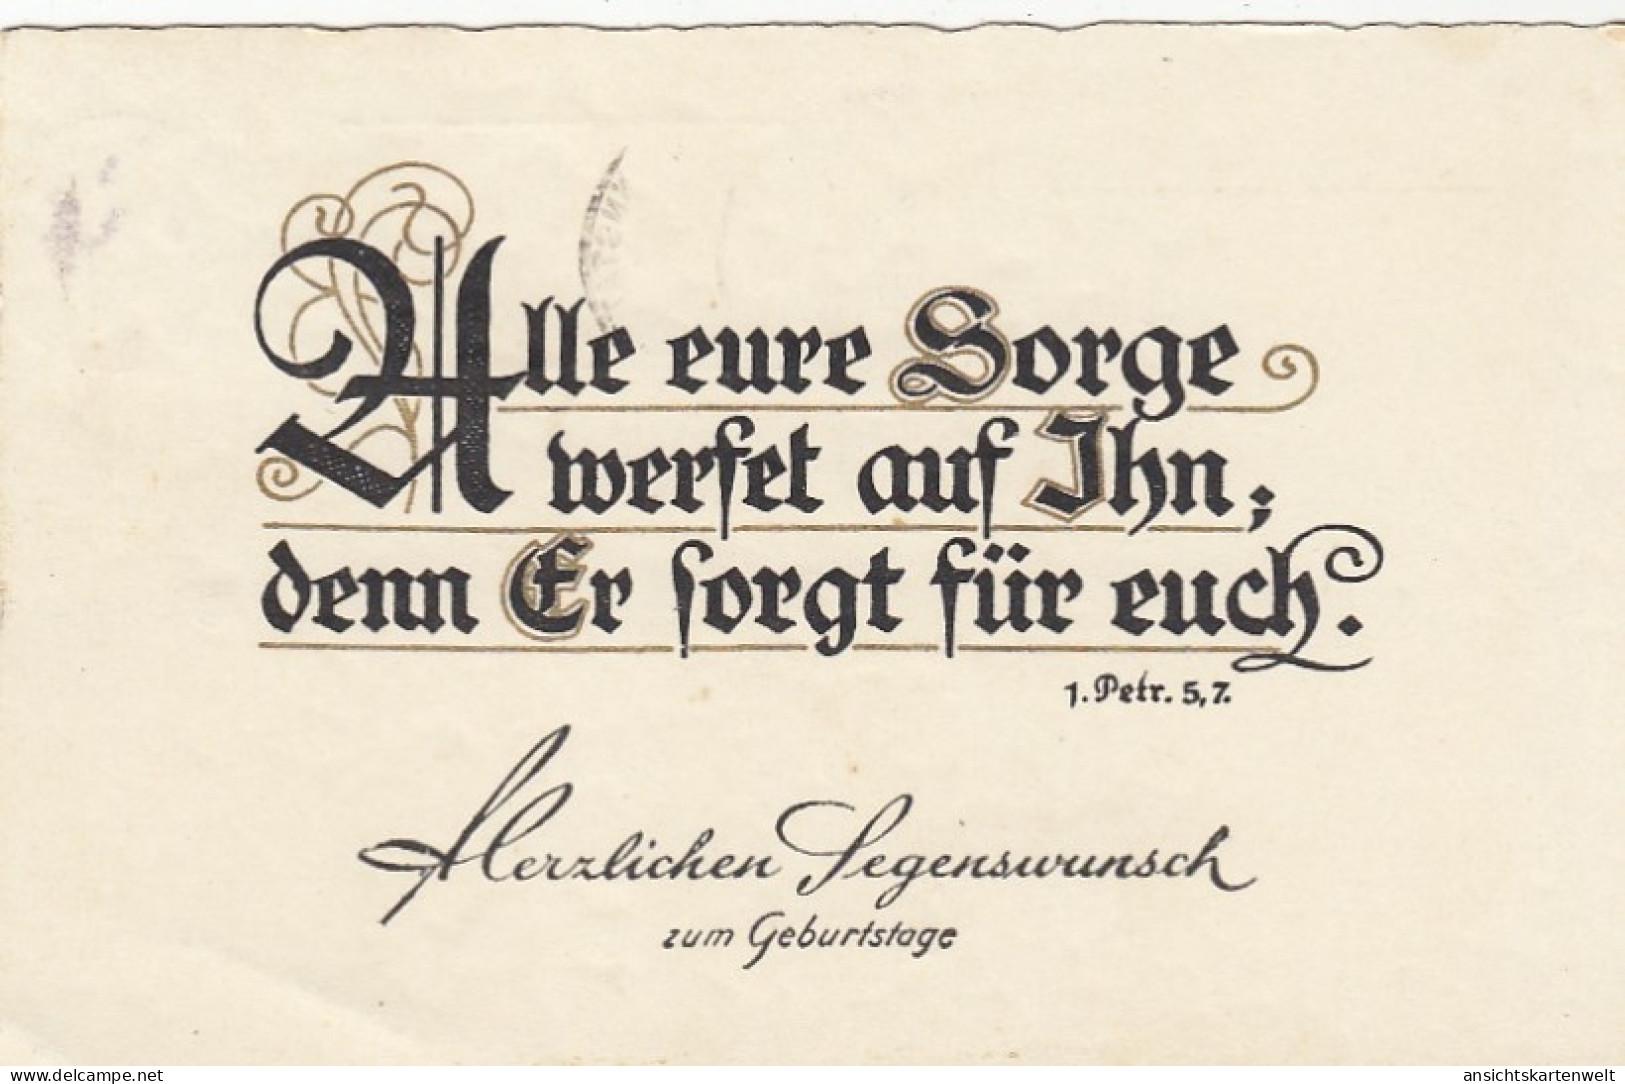 Alle eure Sorge
werfet auf Ihn;
denn Er sorgt für euch.
1. Petr. 5,7.
Herzlichen Segenswunsch
zum Geburtstage
delcampe.net
ansichtskartenwelt